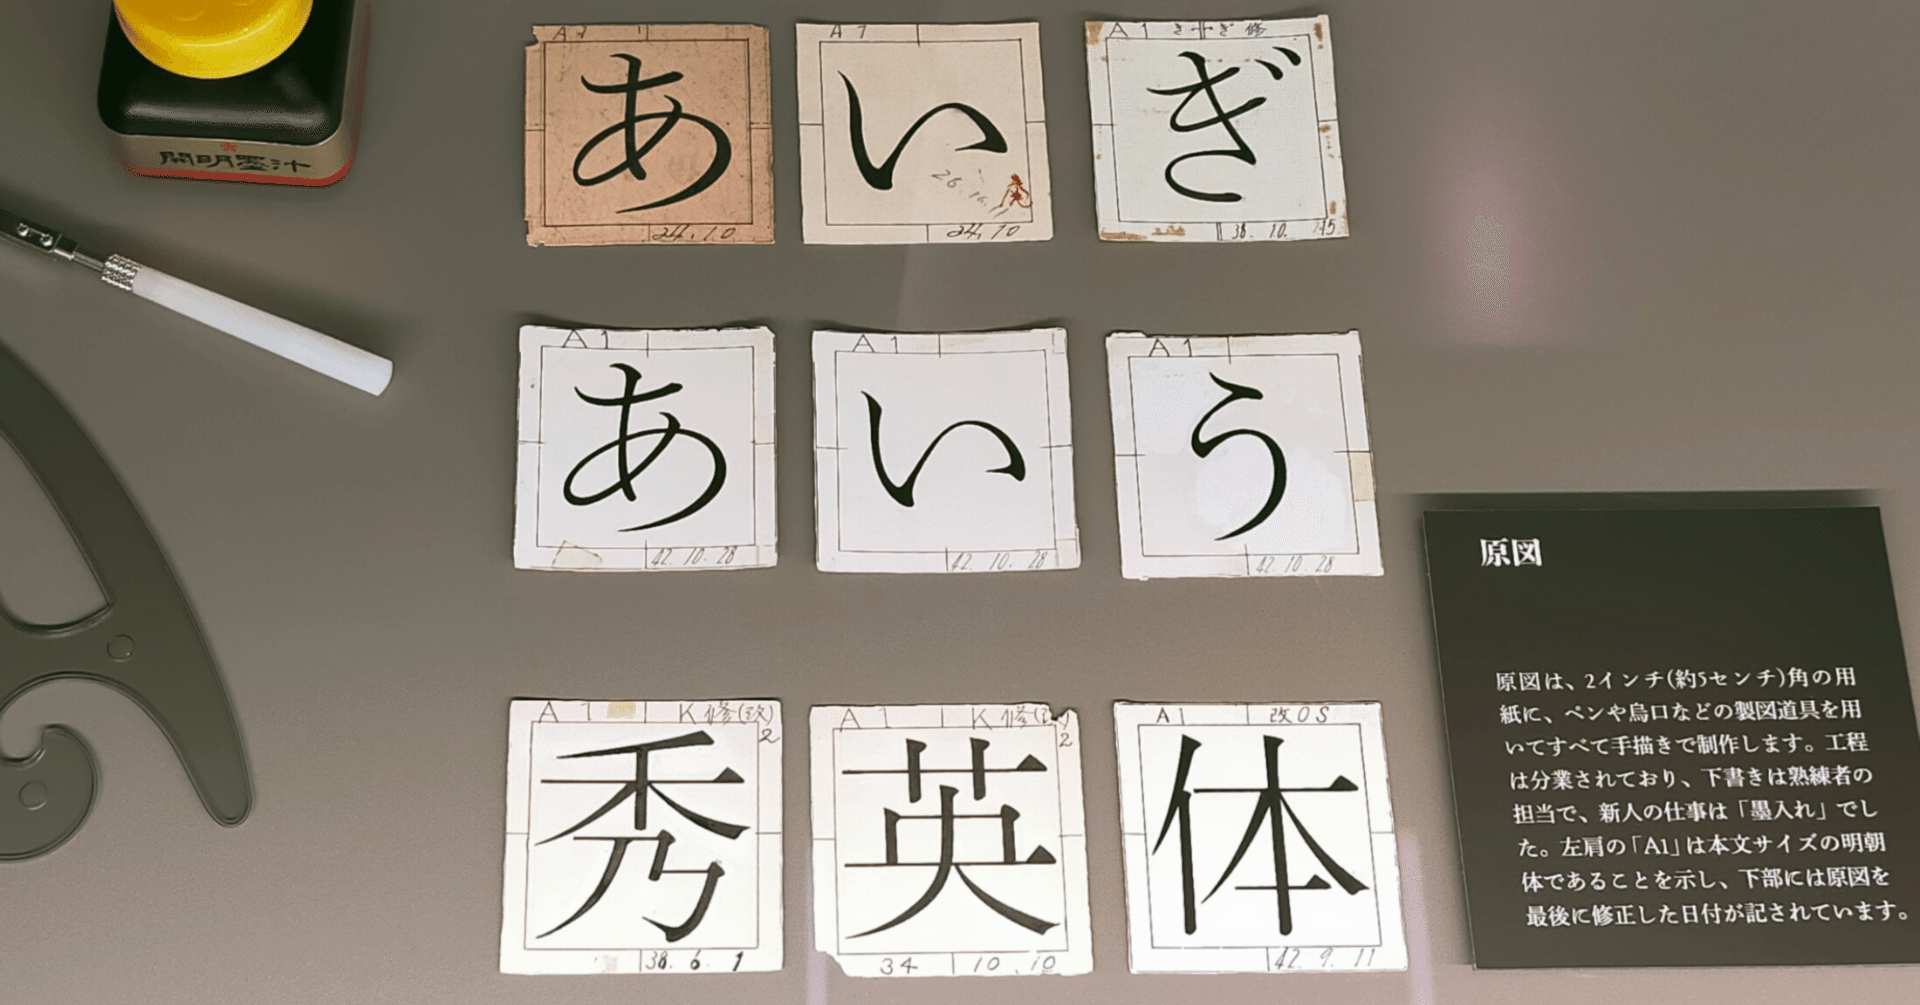 開明墨汁
A1
あ
24.10
A1
い
26.10.11
24.10
A1 さ 修
ぎ
38. 10.
A1
あ
42. 10. 28
A1
い
42. 10. 28
A1
う
42. 10. 28
A1 K 修(改)
2
秀
38. 6. 1
A1 K 修
2
英
34 10.10
A1 改OS
体
42. 9. 11
原図
原図は、2インチ(約5センチ)角の用
紙に、ペンや烏口などの製図道具を用
いてすべて手描きで制作します。工程
は分業されており、下書きは熟練者の
担当で、新人の仕事は「墨入れ」でし
た。左肩の「A1」は本文サイズの明朝
体であることを示し、下部には原図を
最後に修正した日付が記されています。